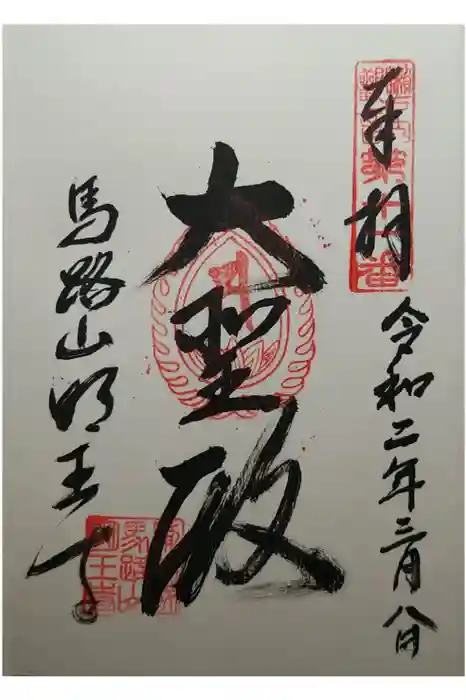 奉拝
令和二年三月八日
大聖殿
馬路山明王寺